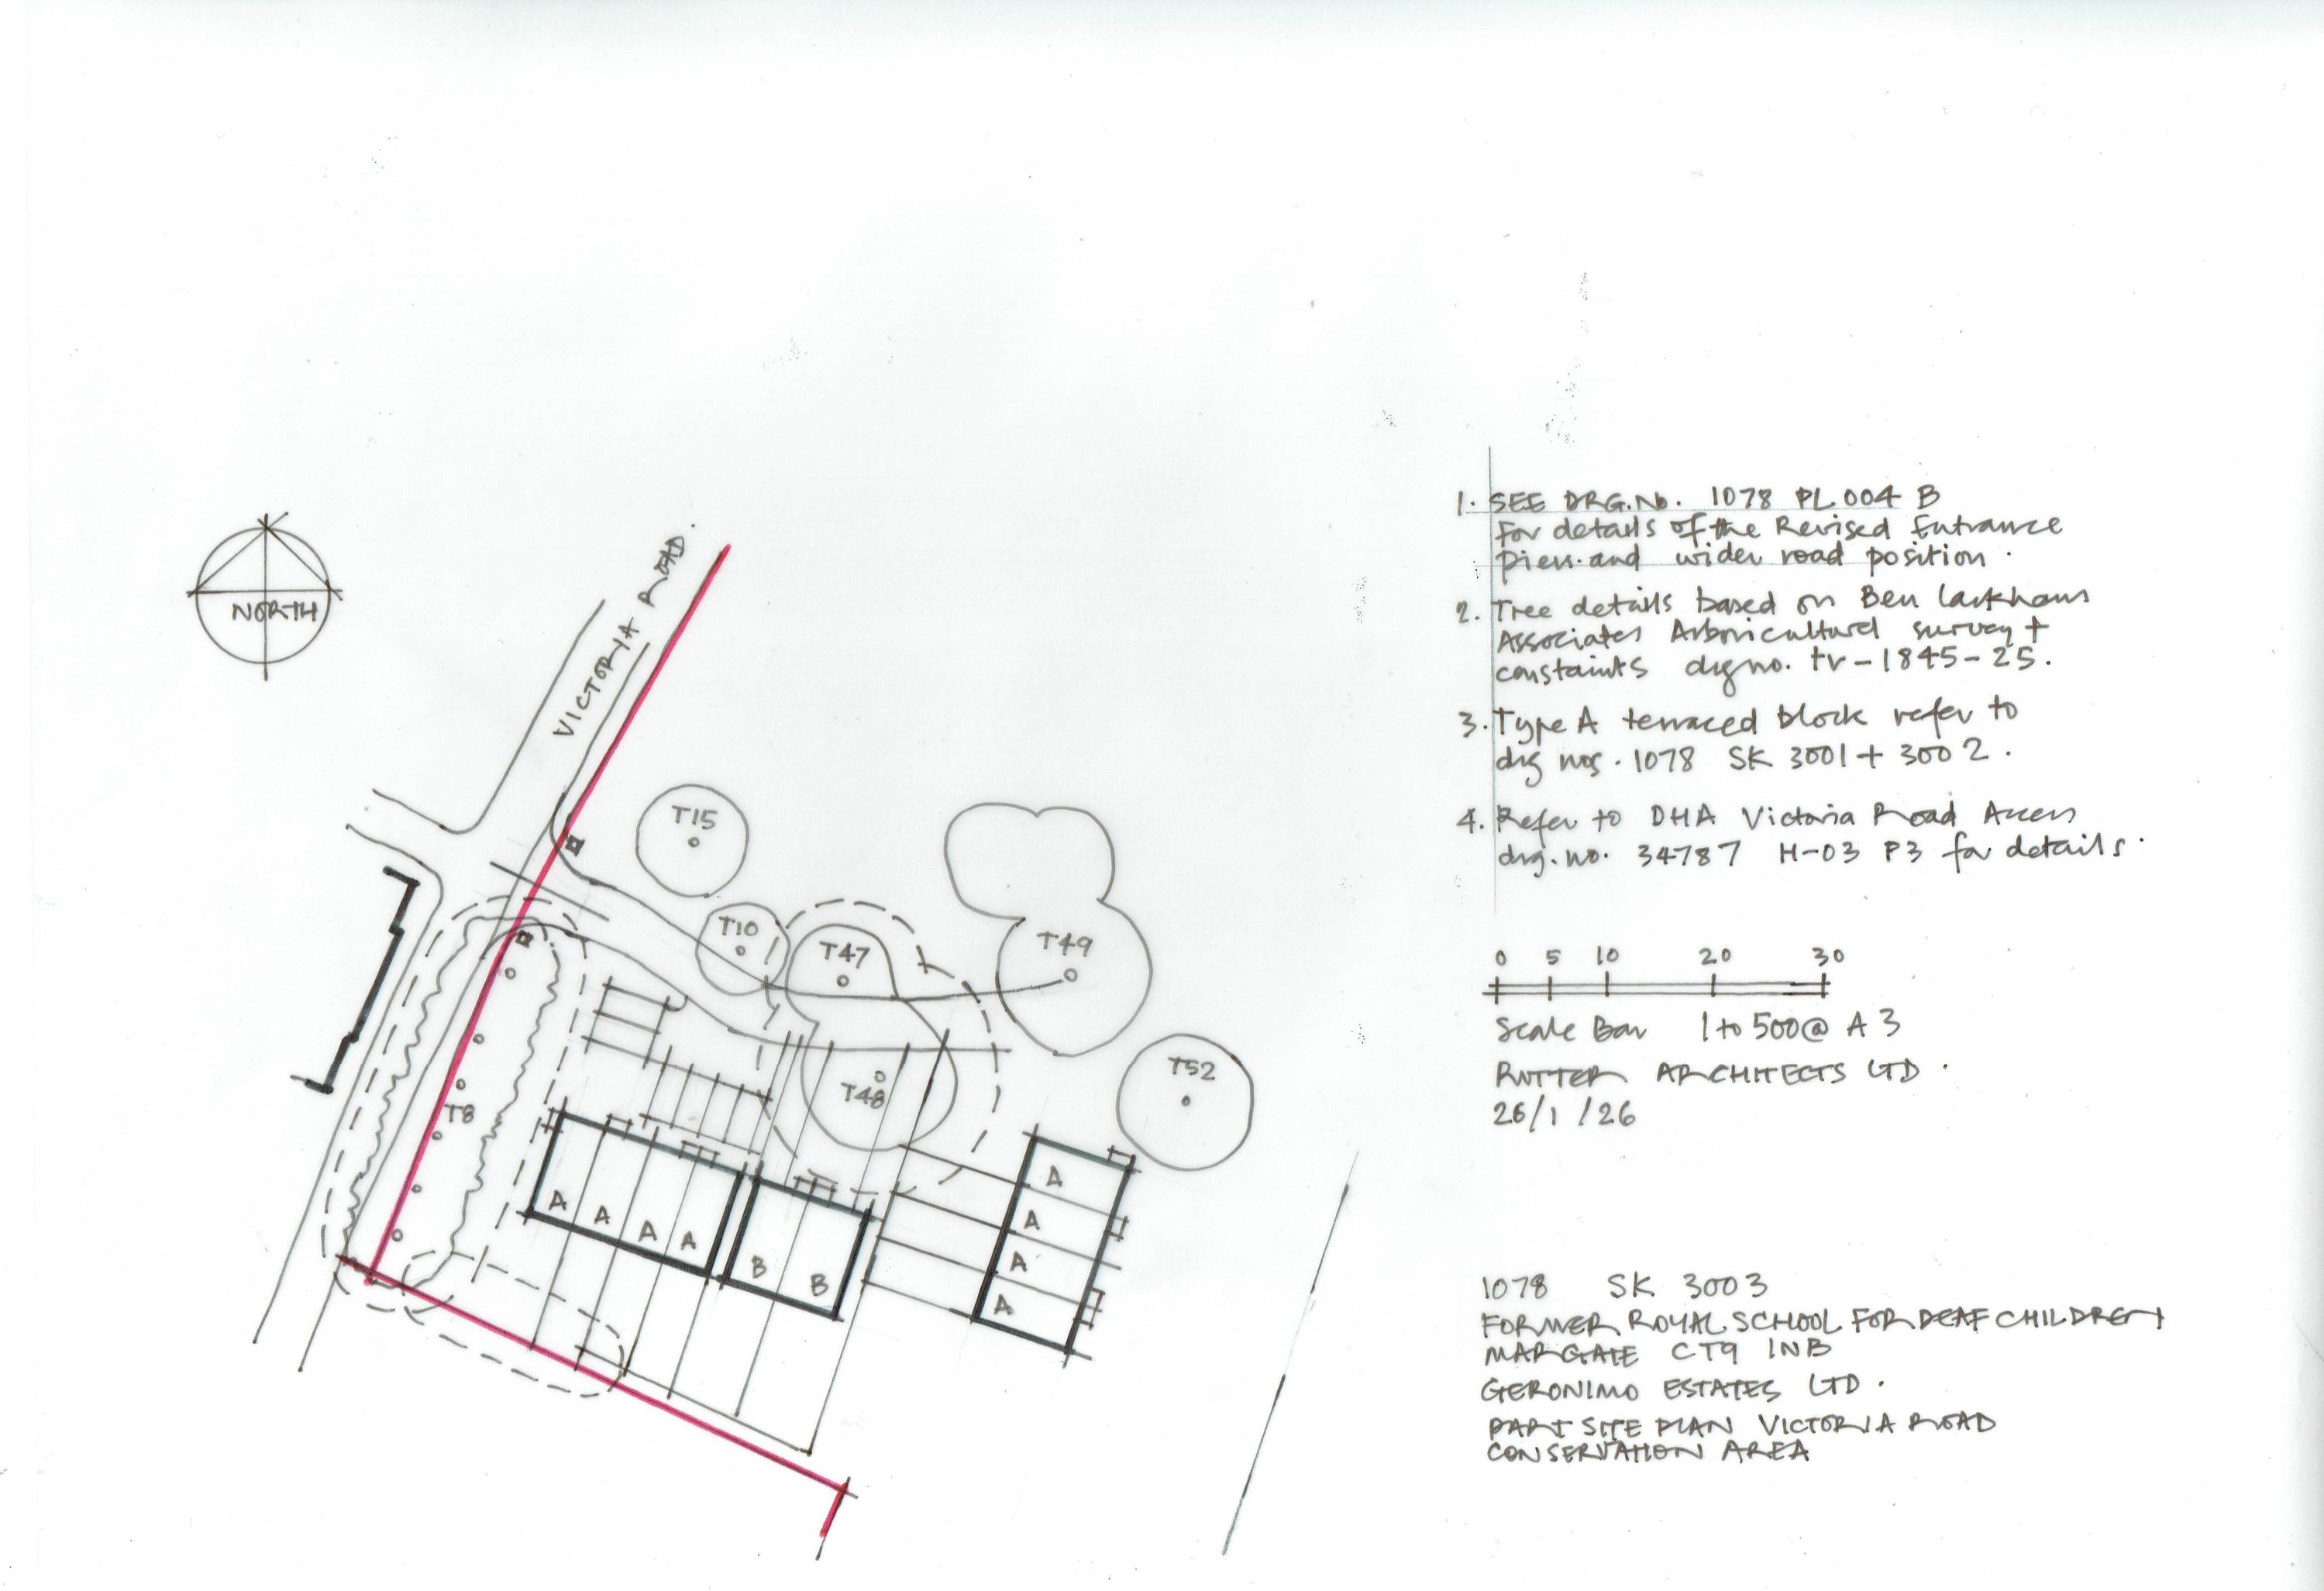 NORTH
VICTORIA ROAD.
T15
T10
T47
T49
T48
T52
T8
A
A
A
A
B
B
A
A
A
A
1. SEE DRG.No. 1078 PL.004 B
For details of the Revised Entrance
piers and wider road position.
2. Tree details based on Ben Larkham
Associates Arboricultural survey +
constaints drg no. tv-1845-25.
3. Type A terraced block refer to
drg nos. 1078 SK 3001 + 3002.
4. Refer to DHA Victoria Road Access
drg. no. 34787 H-03 P3 for details.
0 5 10 20 30
Scale Bar 1 to 500 @ A3
RUTTER ARCHITECTS LTD.
26/1/26
1078 SK 3003
FORMER ROYAL SCHOOL FOR DEAF CHILDREN
MARGATE CT9 1NB
GERONIMO ESTATES LTD.
PART SITE PLAN VICTORIA ROAD
CONSERVATION AREA